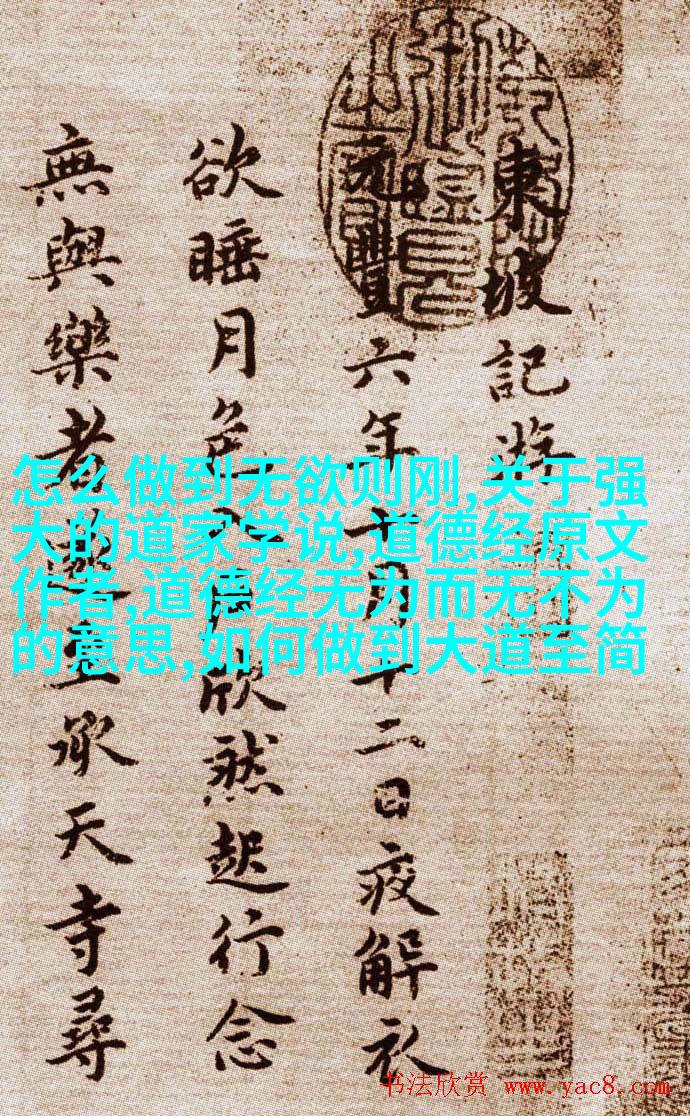 東坡記遊
元豐六年十月十二日疫解衣
欲睡月色入戶欣然起行念
無與樂者遂至承天寺尋
怎么做到无欲则刚,关于强
大的道家学说,道德经原文
作者,道德经无为而无不为
的意思,如何做到大道至简
书法欣赏 www.yac8.com